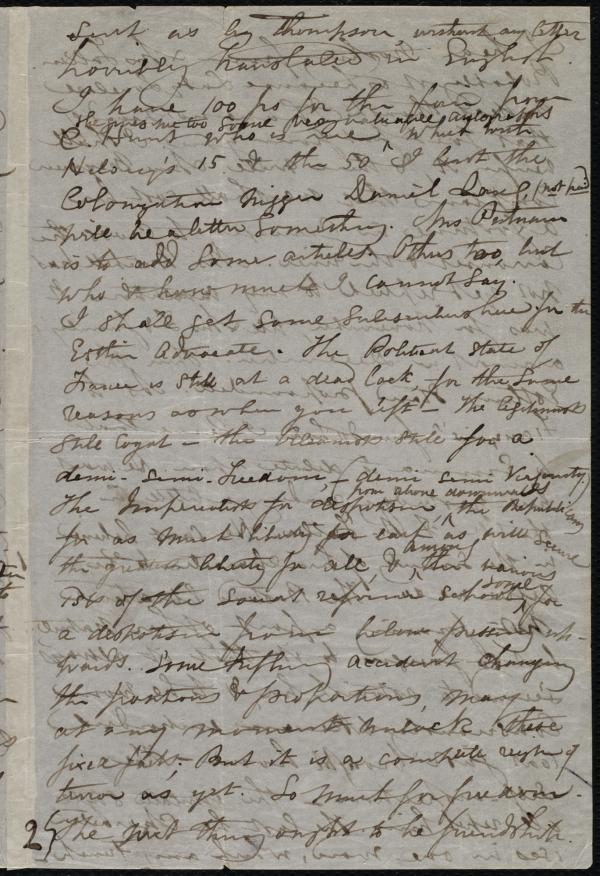 sent as by thompson, without any letter
horribly translated in English.
I have 100 fs for the fair from
He gives me too some very valuable autographs
E Hunt who is here. What with
Hilary's 15 & the 50 & I sent the
Colonization nigger Daniel (not paid)
will be a letter something. Mrs Putnam
is to add some articles. Others too, but
who & how much I cannot say.
I shall get some subscribers here for the
Advocate. The Political State of
France is still at a dead lock, for the same
reasons as when you left – The Legitimists
still Loyal – the Orleanists still for a
demi-semi-freedom, – (demi semi
from above downwards
The Imperialists for despotism, the Republicans
for as much liberty for each as will secure
among
the greatest liberty for all & the various
some
isms of the Social reformer schools for
a despotism from below pressing up-
wards. Some trifling accident changing
the positions & proportions, may
at any moment unlock these
fixed facts. But it is a complete reign of
terror as yet. So much for freedom.
The next thing ought to be friendship.
25